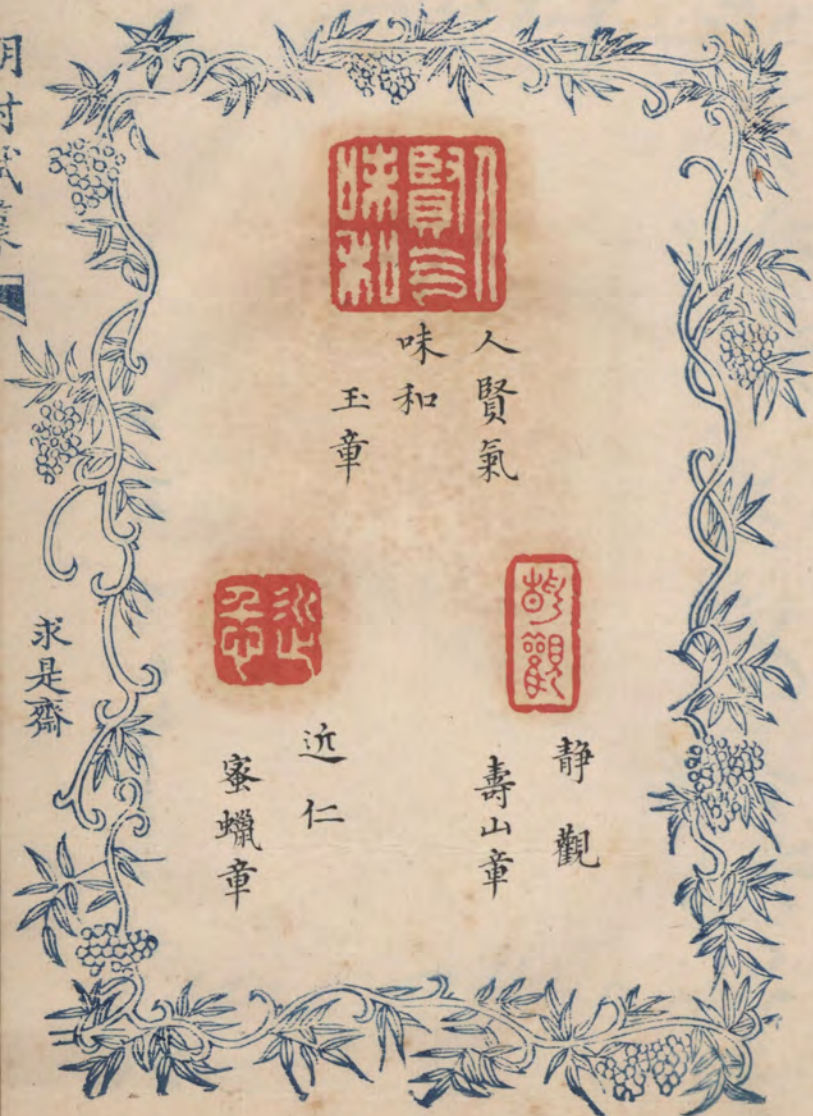 人賢气
味和
人賢氣
味和
玉章
靜觀
靜觀
壽山章
近仁
近仁
蜜蠟章
求是齋